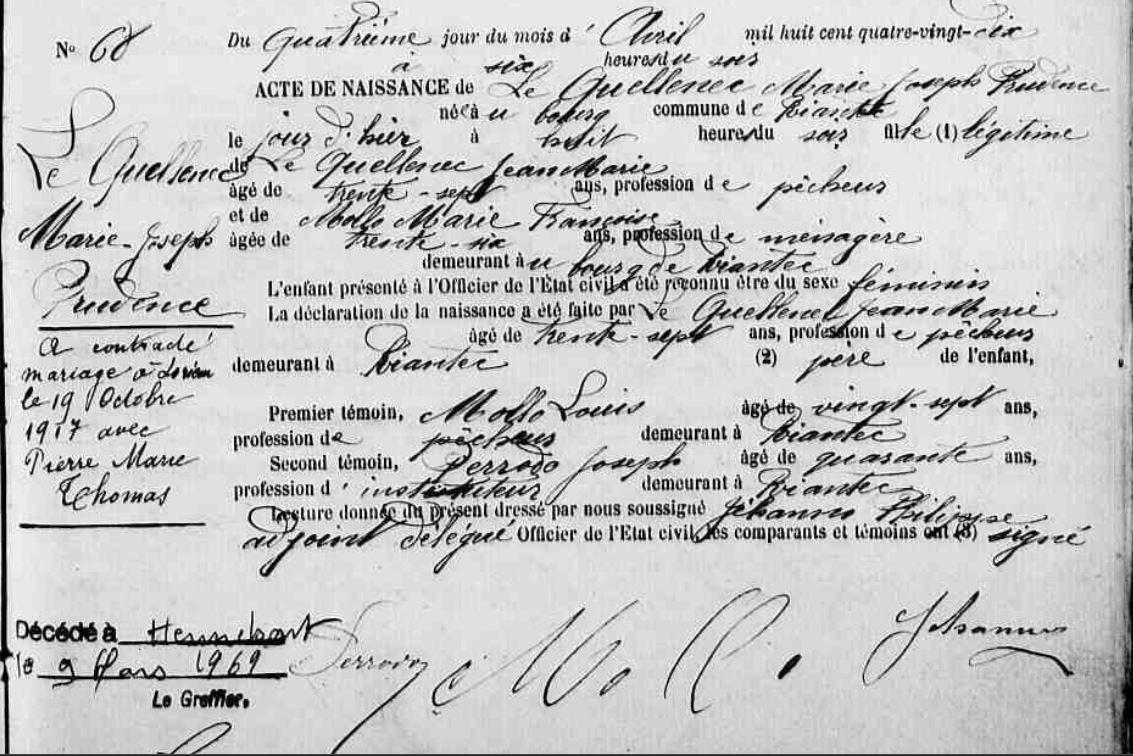 N° 68
Du quatrième jour du mois d' Avril mil huit cent quatre-vingt-dix
à six heures du soir
ACTE DE NAISSANCE de Le Quellenec Marie Joseph Prudence
née au bourg commune de Riantec
le jour d'hier à huit heures du soir fille (1) légitime
de Le Quellenec Jean Marie
âgé de trente-sept ans, profession de pêcheur
et de Mollo Marie Françoise
âgée de trente-six ans, profession de ménagère
demeurant au bourg de Riantec
L'enfant présenté à l'Officier de l'Etat civil a été reconnu être du sexe féminin
La déclaration de la naissance a été faite par Le Quellenec Jean Marie
âgé de trente-sept ans, profession de pêcheur
demeurant à Riantec (2) père de l'enfant,
Premier témoin, Mollo Louis âgé de vingt-sept ans,
profession de pêcheur demeurant à Riantec
Second témoin, Perrodo Joseph âgé de quarante ans,
profession d'instituteur demeurant à Riantec
Lecture donnée du présent dressé par nous soussigné Jéhanno Philippe
adjoint délégué Officier de l'Etat civil, les comparants et témoins ont (3) signé
Le Quellenec
Marie-Joseph
Prudence
a contracté
mariage à
le 19 Octobre
1917 avec
Pierre Marie
Thomas
Décédé à Hennebont
le 9 Mars 1969
Le Greffier.
Perrodo
Jéhanno